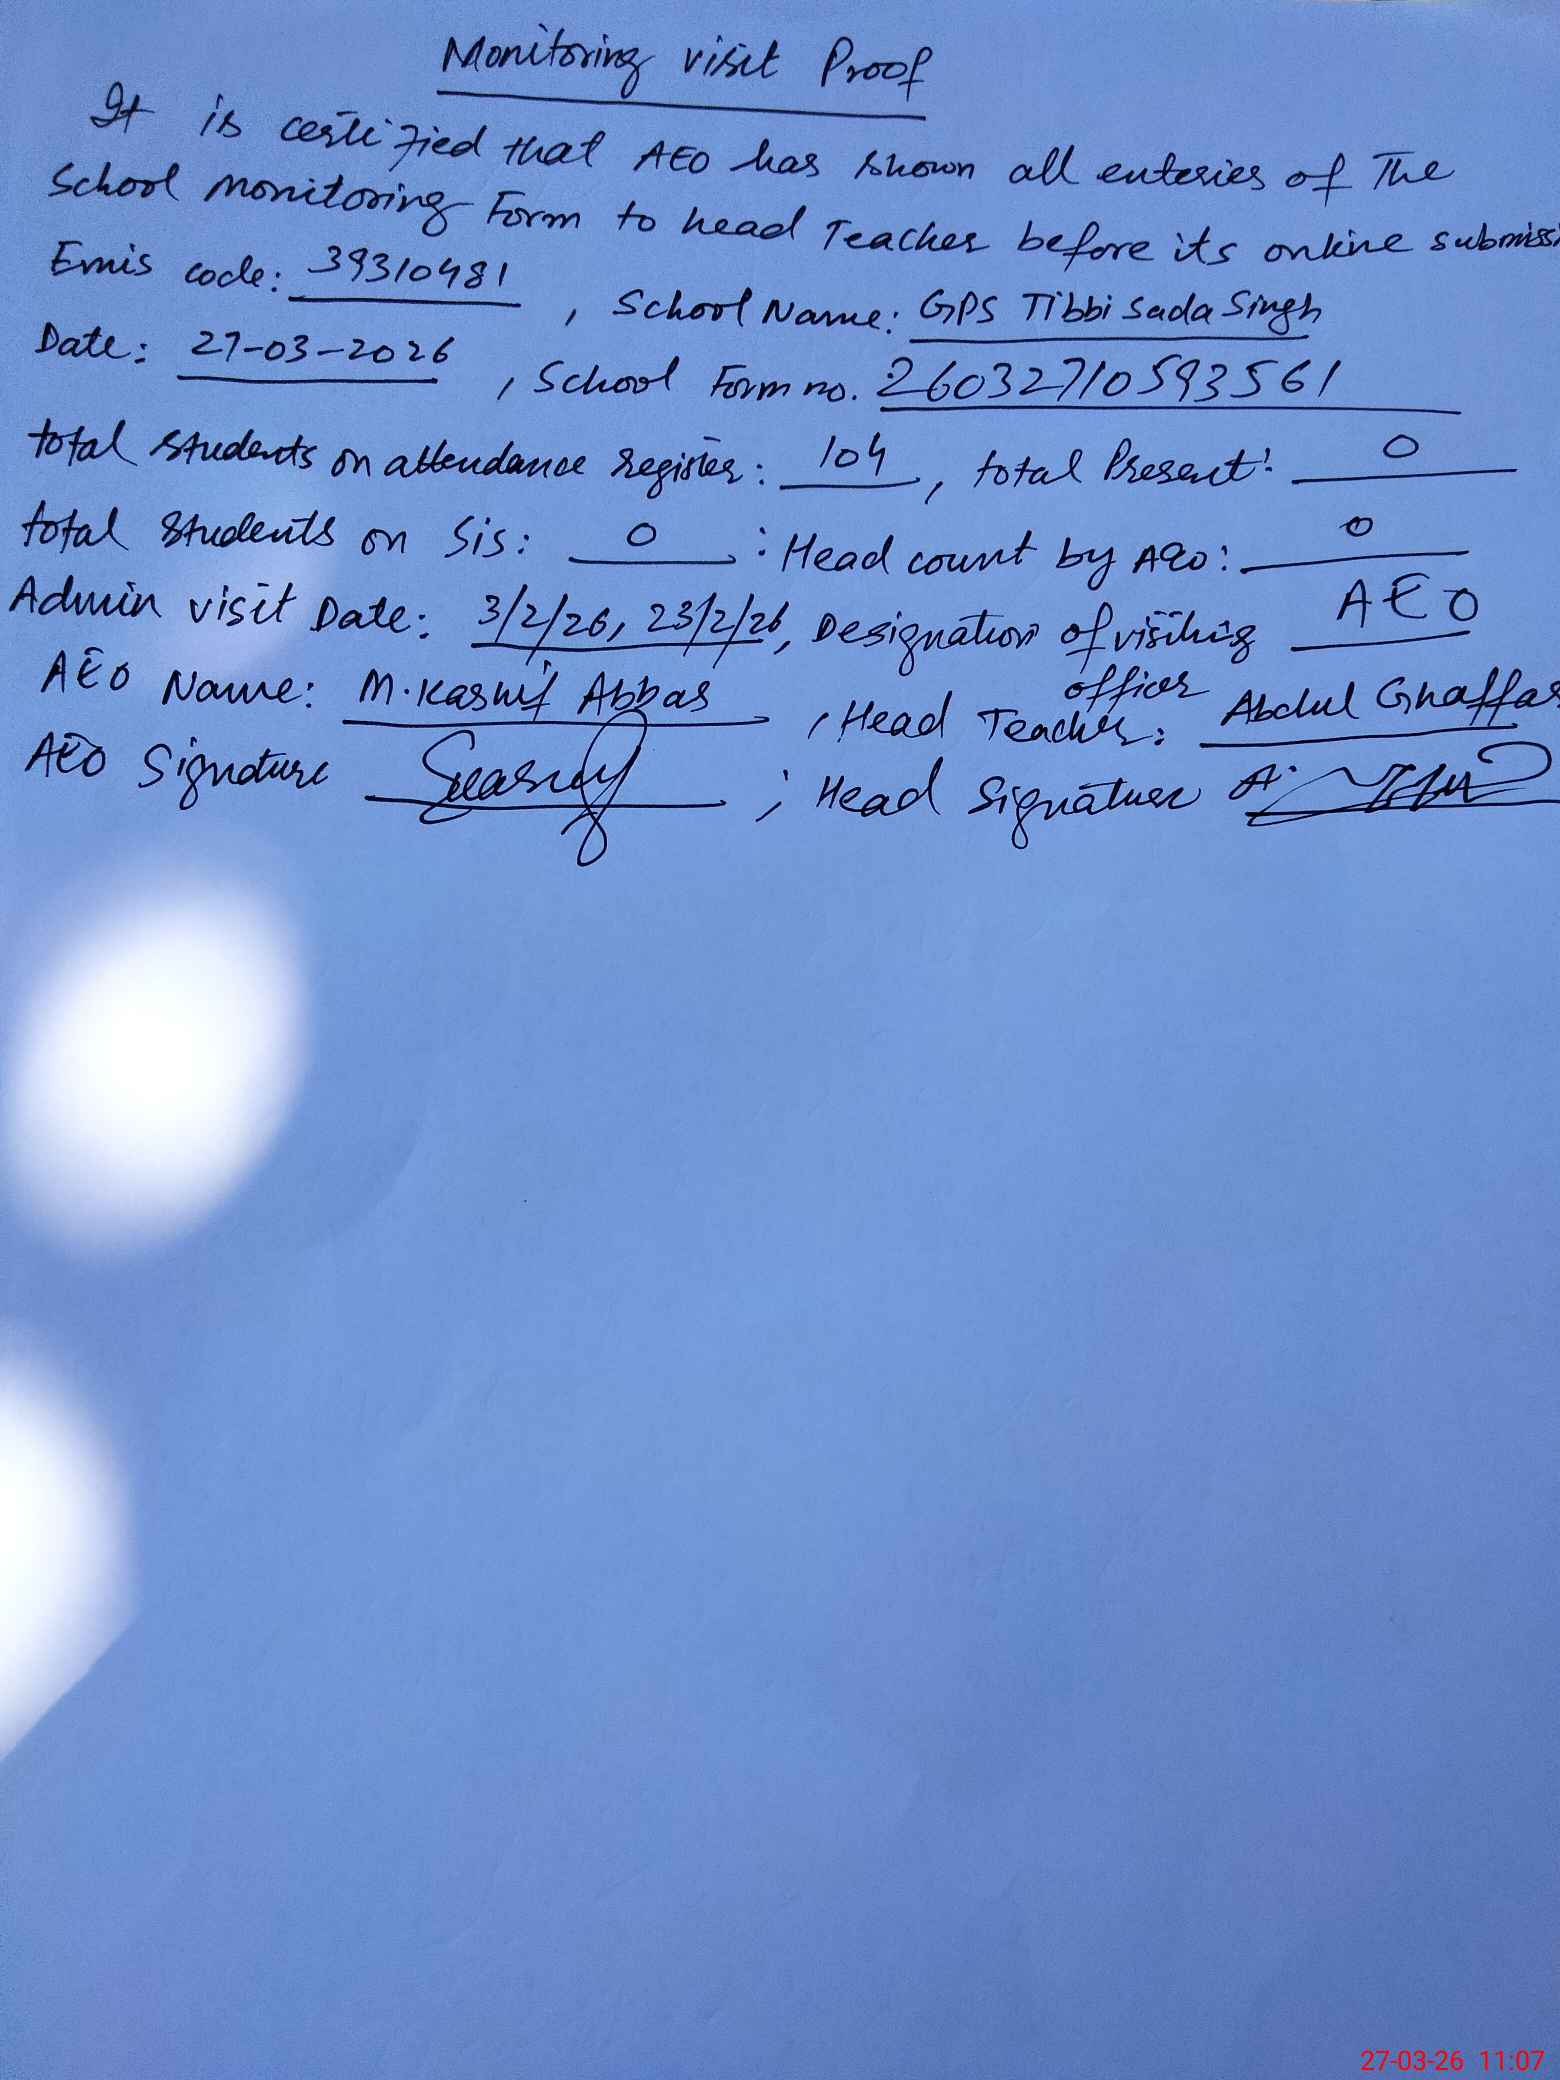 Monitoring visit Proof
It is certified that AEO has shown all enteries of The
School Monitoring Form to head Teacher before its online submissi
Emis code: 39310481, School Name: GPS Tibbi Sada Singh
Date: 27-03-2026, School Form no. 26032710593561
total students on attendance register: 104, total Present: 0
total students on Sis: 0: Head count by AEO: 0
Admin visit Date: 3/2/26, 23/2/26, Designation of visiting officer AEO
AEO Name: M. Kashif Abbas, Head Teacher: Abdul Ghaffar
AEO Signature; Head Signature
27-03-26 11:07